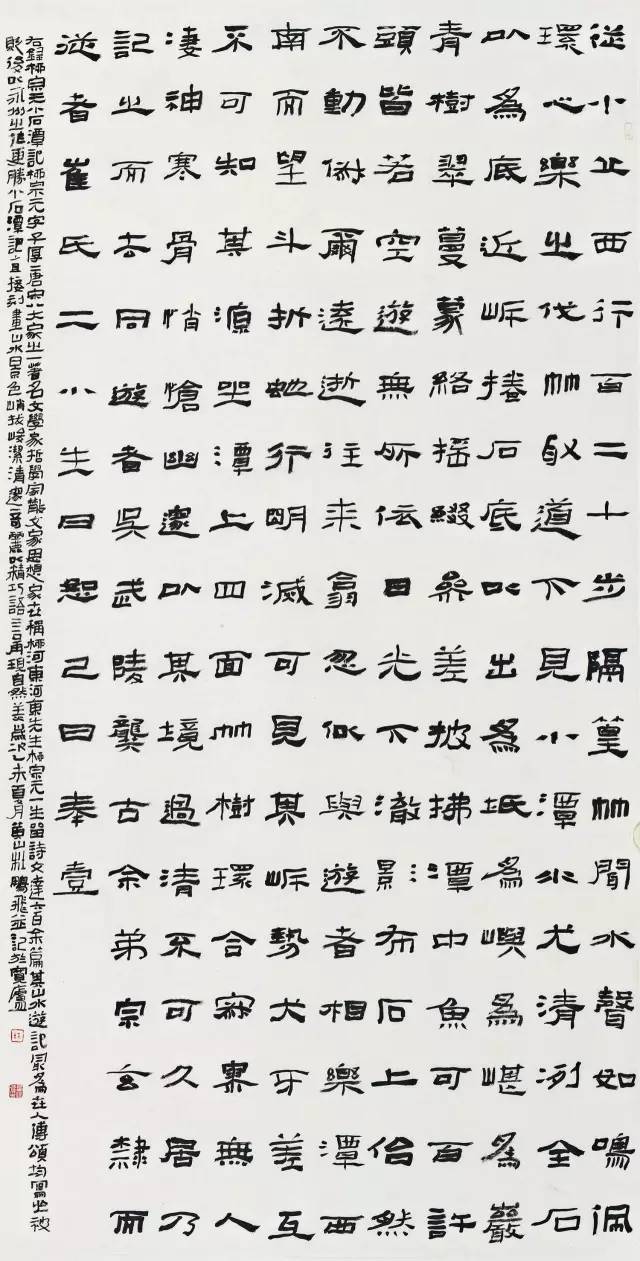 從小丘西行百二十步隔篁竹聞水聲如鳴佩
環心樂之伐竹取道下見小潭水尤清冽全石
以為底近岸捲石底以出為坻為嶼為嵁為巖
青樹翠蔓蒙絡搖綴參差披拂潭中魚可百許
頭皆若空遊無所依日光下澈影布石上佁然
不動俶爾遠逝往來翕忽似與遊者相樂潭西
南而望斗折蛇行明滅可見其岸勢犬牙差互
不可知其源坐潭上四面竹樹環合寂寥無人
淒神寒骨悄愴幽邃以其境過清不可久居乃
記之而去同遊者吳武陵龔古余弟宗玄隸而
從者崔氏二小生曰恕己曰奉壹
右錄柳宗元小石潭記柳宗元字子厚唐宋八大家之一著名文學家哲學家散文家思想家在稱柳河東河東先生柳宗元一生留詩文達六百余篇其山水遊記最為在人傳頌均寫出被
貶後以永州之作更勝小石潭記直接刻畫山水景色峭拔峻潔清邃奇麗以精巧語言再現自然美歲次乙未夏月黃山鵬飛並記於寶廬